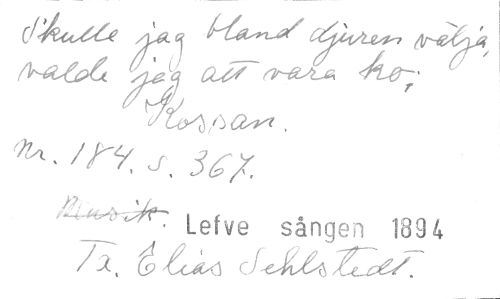 Skulle jag bland djuren välja,
valde jag att vara ko;
Kossan.
Nr. 184. s. 367.
Musik. Lefve sången 1894
Tx. Elias Sehlstedt.